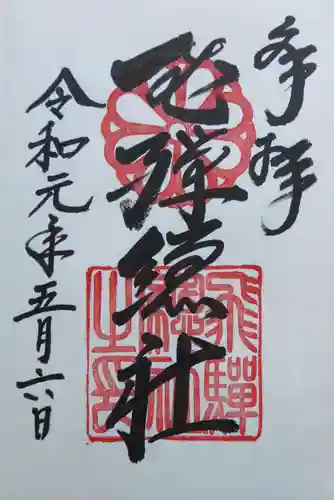 参拝
飛騨総社
飛驒總社之印
令和元年五月六日